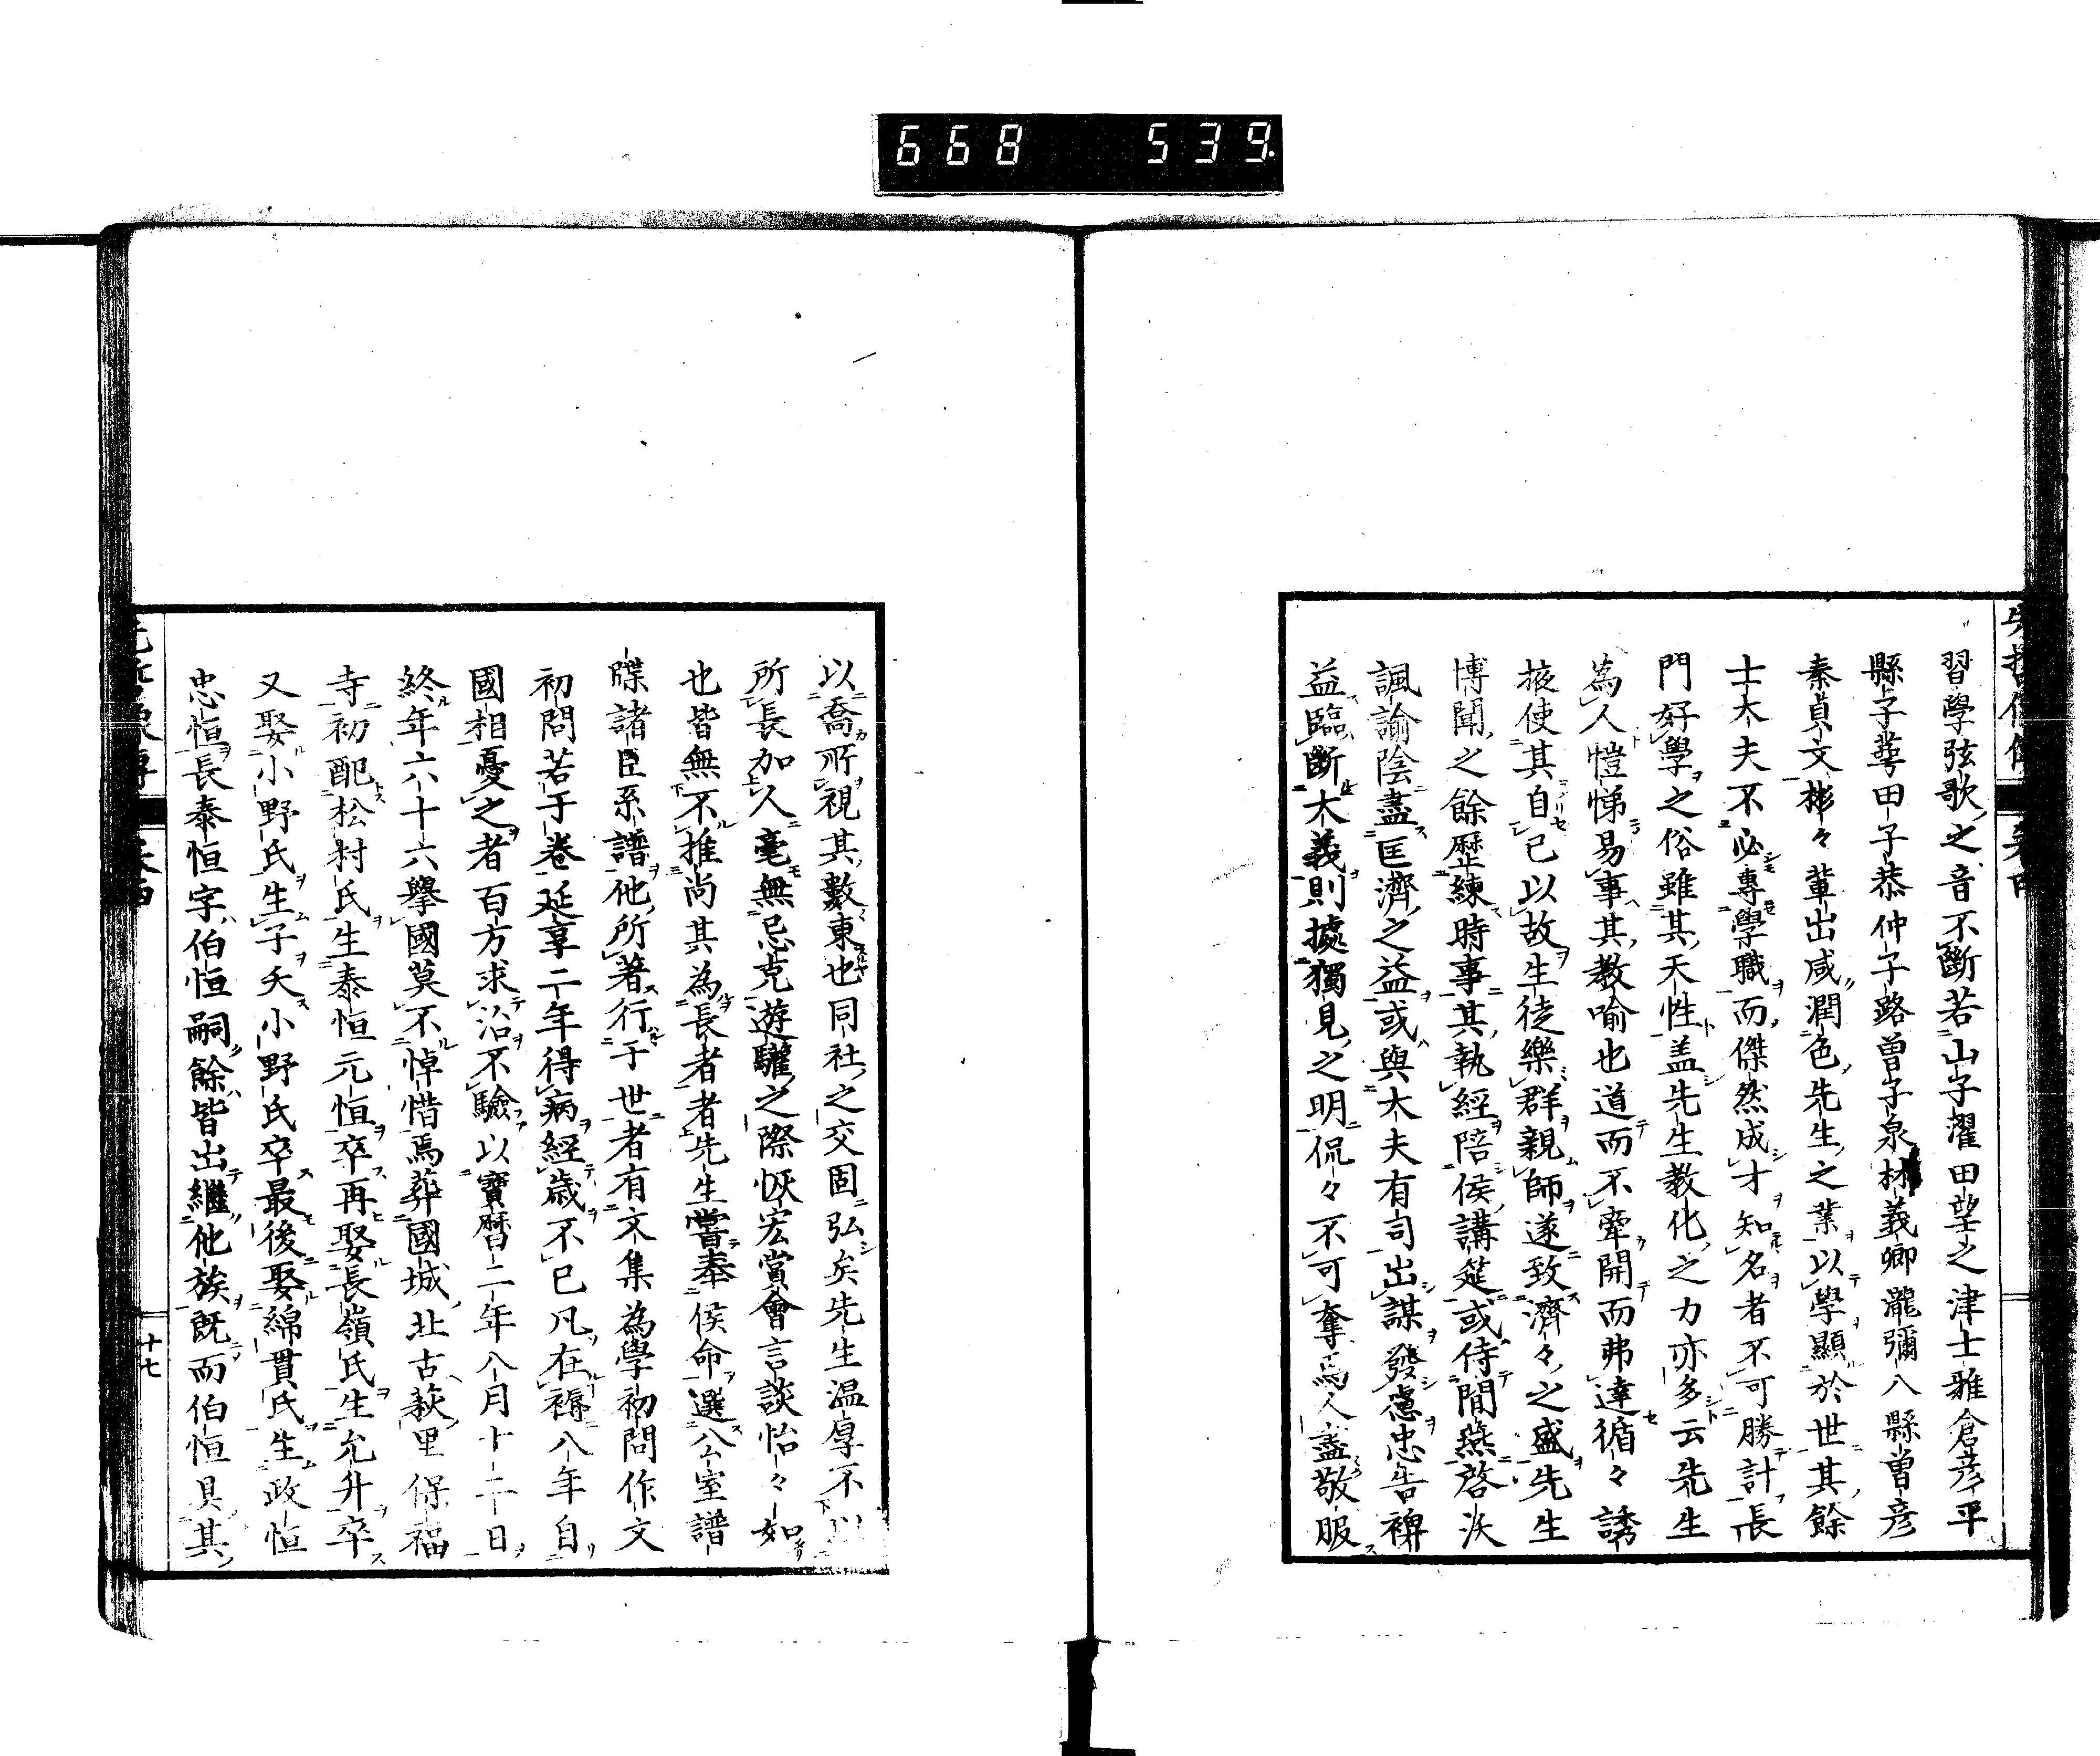 668 539
習學弦歌之音不斷若山子濯田望之津士雅倉彦平
縣子蕚田子恭仲子路曽子泉林義卿瀧彌八縣曽彦
秦貞文彬々輩出咸潤色先生之業以學顯於世其餘
士大夫不必專學職而傑然成才知名者不可勝計長
門好學之俗雖其天性盖先生教化之力亦多云先生
為人愷悌易事其教喻也道而不牽開而弗達循々誘
掖使其自已以故生徒樂群親師遂致濟々之盛先生
博聞之餘歴練時事其執經陪侯講筵或侍間燕啓沃
諷諭陰盡匡濟之益或與大夫有司出謀發慮忠告裨
益臨斷大義則據獨見之明侃々不可奪焉人盡敬服
以喬所視其數東也同社之交固弘矣先生温厚不以
所長加人毫無忌克遊驩之際恢宏賞會言談怡々如
也皆無不推尚其為長者者先生嘗奉侯命選公室譜
牒諸臣系譜他所著行于世者有文集為學初問作文
初問若干卷延享二年得病經歳不已凡在褥八年自
國相憂之者百方求治不驗以寶暦二年八月十二日
終年六十六擧國莫不悼惜焉葬國城北古萩里保福
寺初配松村氏生泰恒元恒卒再娶長嶺氏生允升卒
又娶小野氏生子夭小野氏卒最後娶綿貫氏生政恒
忠恒長泰恒字伯恒嗣餘皆出繼他族既而伯恒具其
十七